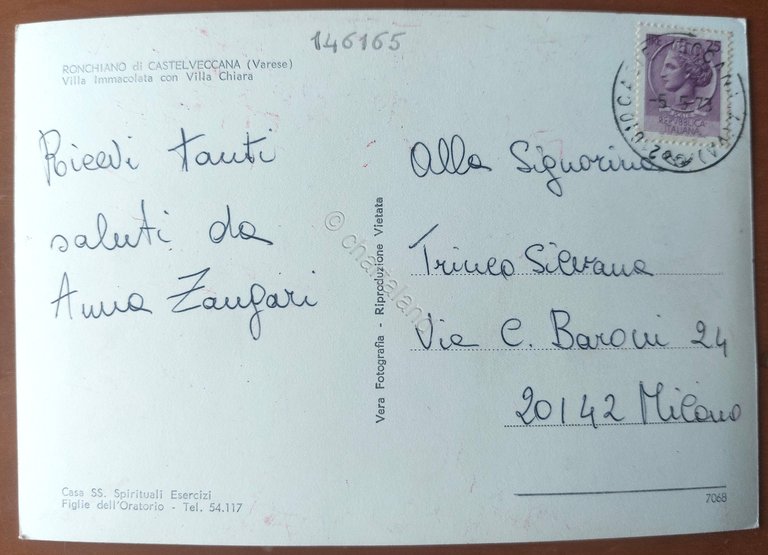 146165
RONCHIANO di CASTELVECCANA (Varese)
Villa Immacolata con Villa Chiara
LIRE 25
-5.5.73
REPUBBLICA
ITALIANA
Ricevi tanti
saluti da
Anna Zangari
Alla Signorina
Trinco Silvana
Via C. Baroni 24
20142 Milano
Vera Fotografia - Riproduzione Vietata
© charaland
Casa SS. Spirituali Esercizi
Figlie dell'Oratorio - Tel. 54.117
7068